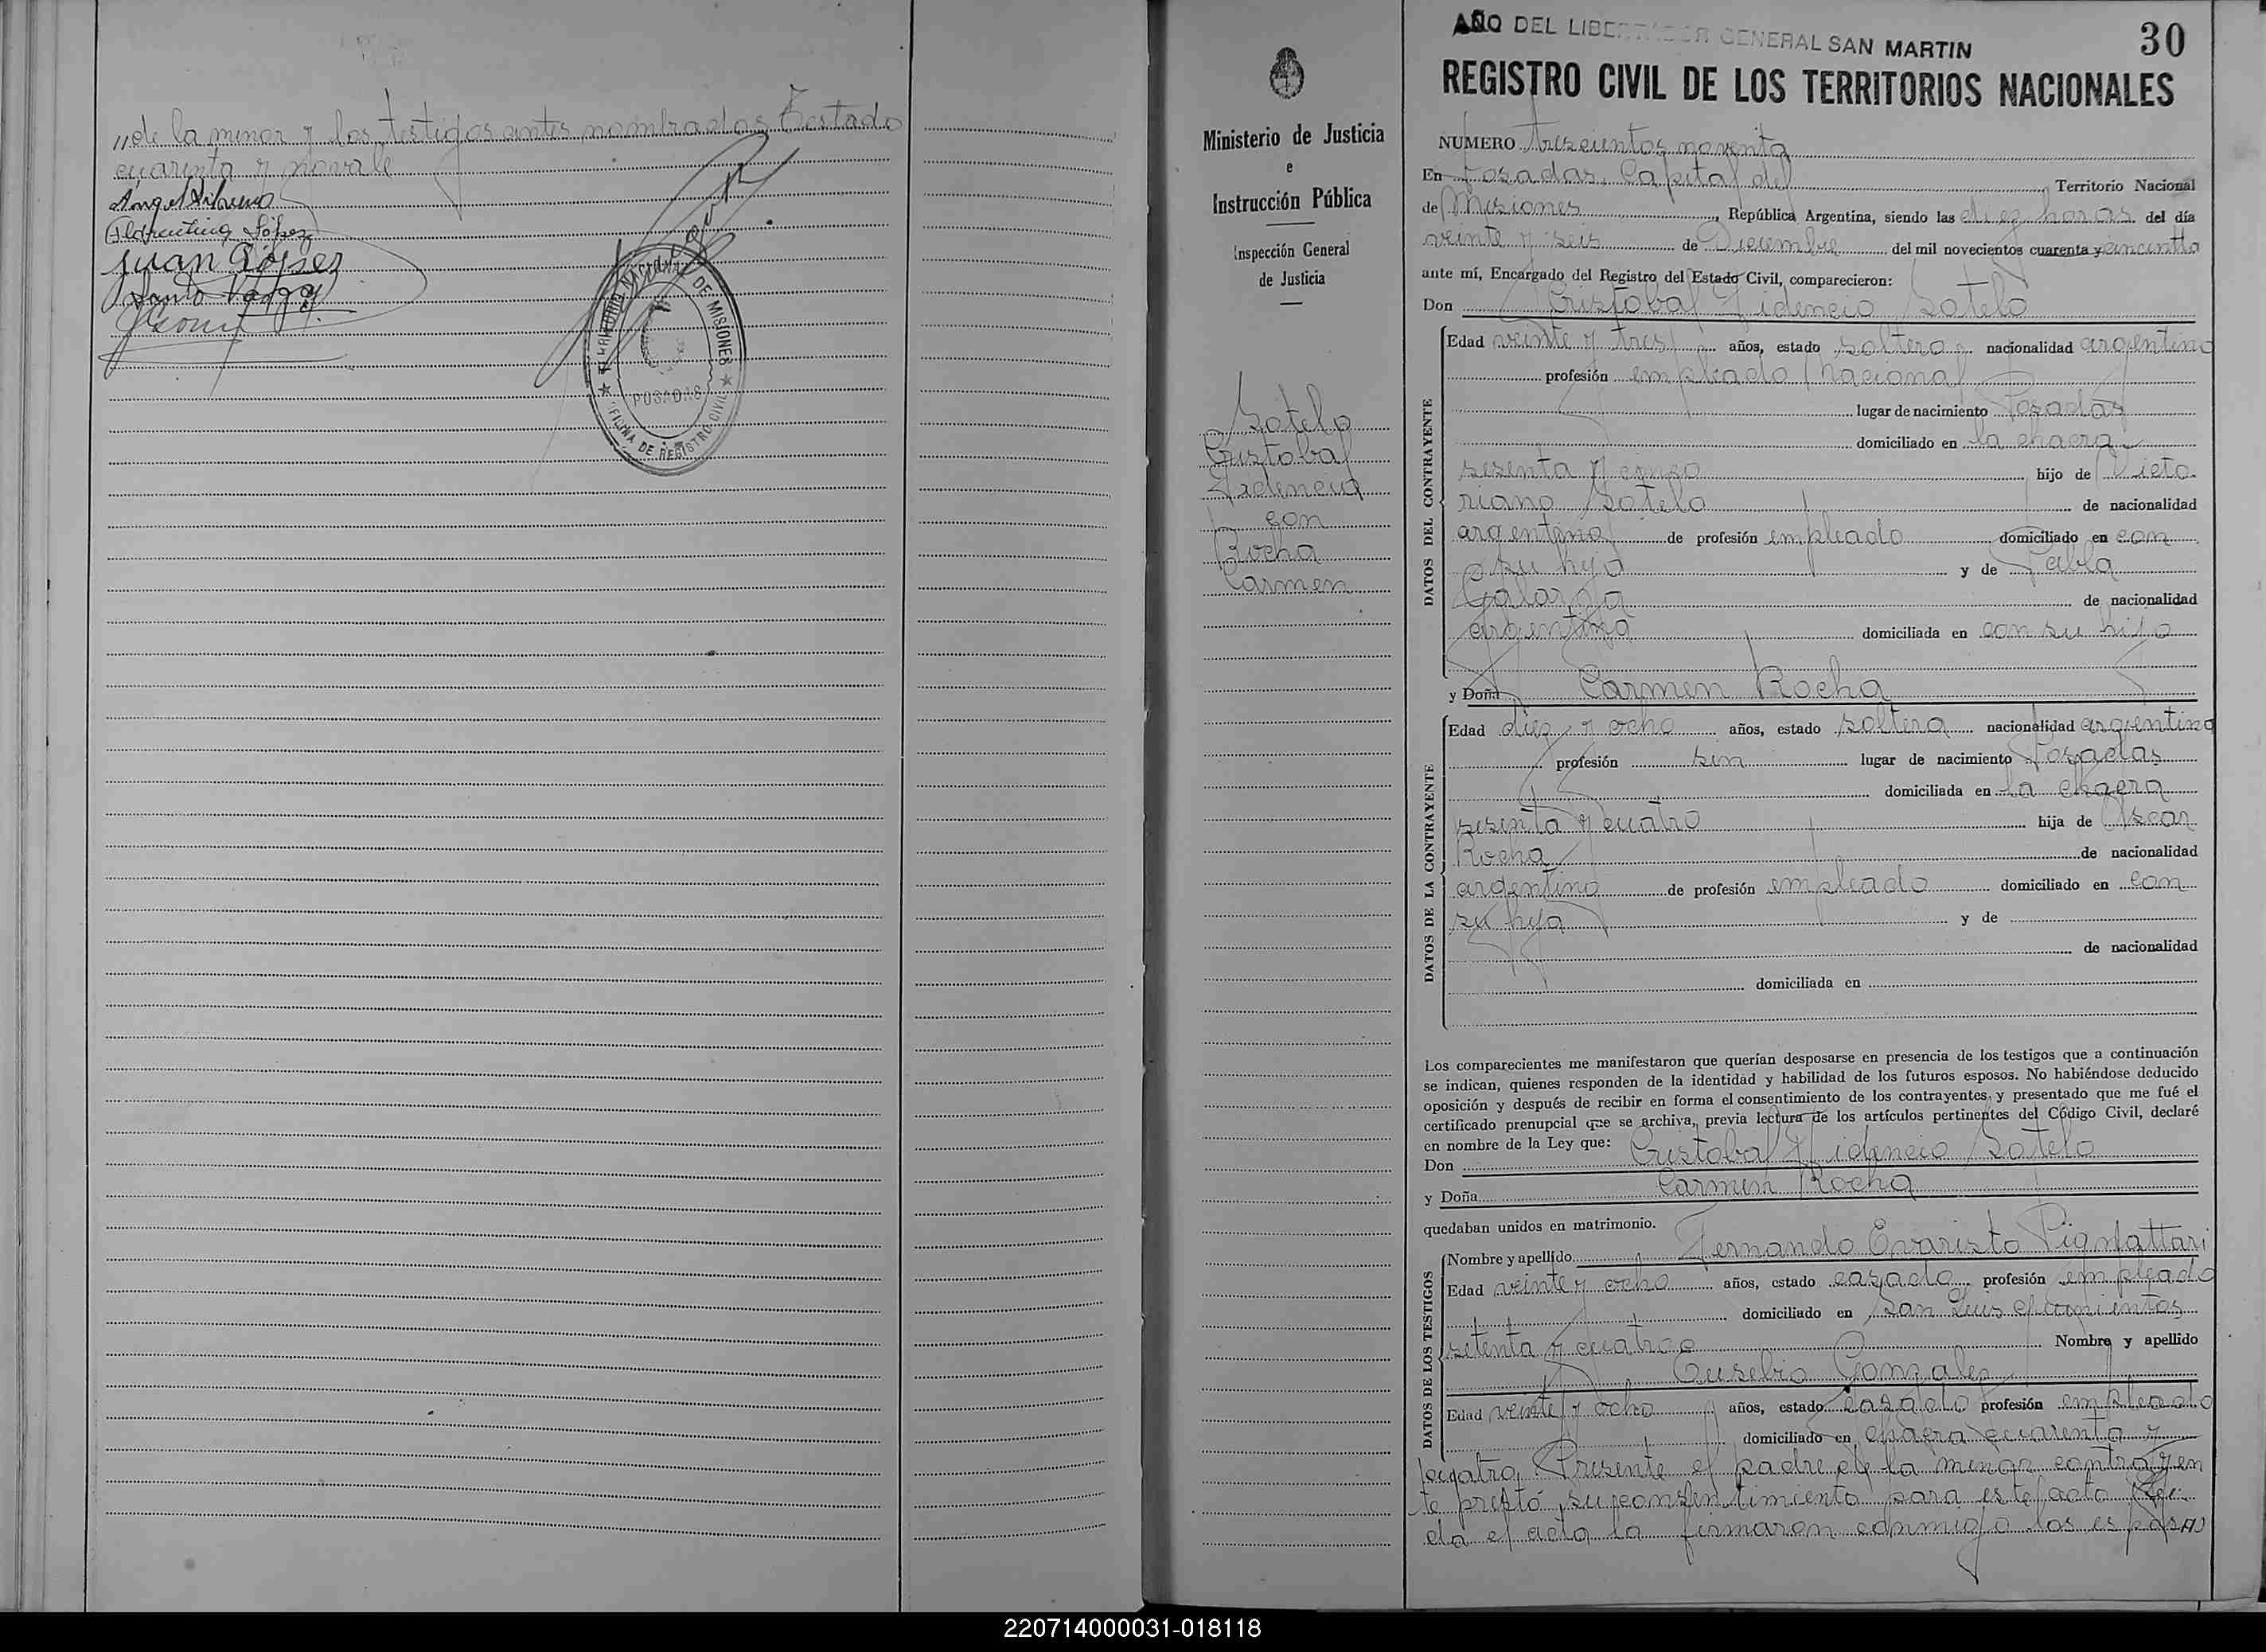 „de la menor y los testigos antes nombrados Testado
cuarenta y no vale
Florentina López
Juan López
TERRITORIO NACIONAL DE MISIONES
POSADAS
OFICINA DE REGISTRO CIVIL
Ministerio de Justicia
e
Instrucción Pública
Inspección General
de Justicia
Sotelo
Cristobal
Fidencio
con
Rocha
Carmen
AÑO DEL LIBERTADOR GENERAL SAN MARTIN
30
REGISTRO CIVIL DE LOS TERRITORIOS NACIONALES
NUMERO trescientos noventa
En Posadas, Capital del Territorio Nacional
de Misiones, República Argentina, siendo las diez horas del día
veinte y seis de Diciembre del mil novecientos cuarenta y cincuenta
ante mí, Encargado del Registro del Estado Civil, comparecieron:
Don Cristobal Fidencio Sotelo
DATOS DEL CONTRAYENTE
Edad veinte y tres años, estado soltero nacionalidad argentino
profesión empleado nacional
lugar de nacimiento Posadas
domiciliado en la chacra
sesenta y cinco hijo de Victo-
riano Sotelo de nacionalidad
argentino de profesión empleado domiciliado en con
su hijo y de Pabla
Galarza de nacionalidad
argentina domiciliada en con su hijo
y Doña Carmen Rocha
DATOS DE LA CONTRAYENTE
Edad diez y ocho años, estado soltera nacionalidad argentina
profesión sin lugar de nacimiento Posadas
domiciliada en la chacra
sesenta y cuatro hija de Oscar
Rocha de nacionalidad
argentino de profesión empleado domiciliado en con
su hija y de
de nacionalidad
domiciliada en
Los comparecientes me manifestaron que querían desposarse en presencia de los testigos que a continuación
se indican, quienes responden de la identidad y habilidad de los futuros esposos. No habiéndose deducido
oposición y después de recibir en forma el consentimiento de los contrayentes, y presentado que me fué el
certificado prenupcial que se archiva, previa lectura de los artículos pertinentes del Código Civil, declaré
en nombre de la Ley que:
Don Cristobal Fidencio Sotelo
y Doña Carmen Rocha
quedaban unidos en matrimonio.
DATOS DE LOS TESTIGOS
Nombre y apellido Fernando Evaristo Pignattari
Edad veinte y ocho años, estado casado profesión empleado
domiciliado en San Luis chocientos
setenta y cuatro Nombre y apellido
Eusebio Gonzalez
Edad veinte y ocho años, estado casado profesión empleado
domiciliado en chacra cuarenta y
cuatro, Presente el padre de la menor contrayen
te prestó su consentimiento para este acto Lei-
da el acta la firmaron conmigo los esposos
220714000031-018118